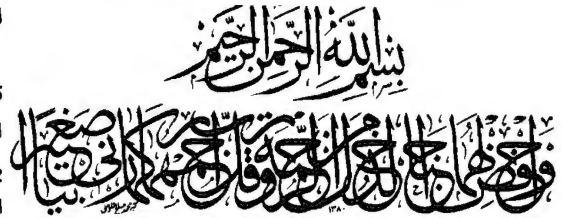 بِسْمِ اللهِ الرَّحْمٰنِ الرَّحِيْمِ
وَاخْفِضْ لَهُمَا جَنَاحَ الذُّلِّ مِنَ الرَّحْمَةِ وَقُلْ رَبِّ ارْحَمْهُمَا كَمَا رَبَّيَانِي صَغِيرًا
١٣٨٠